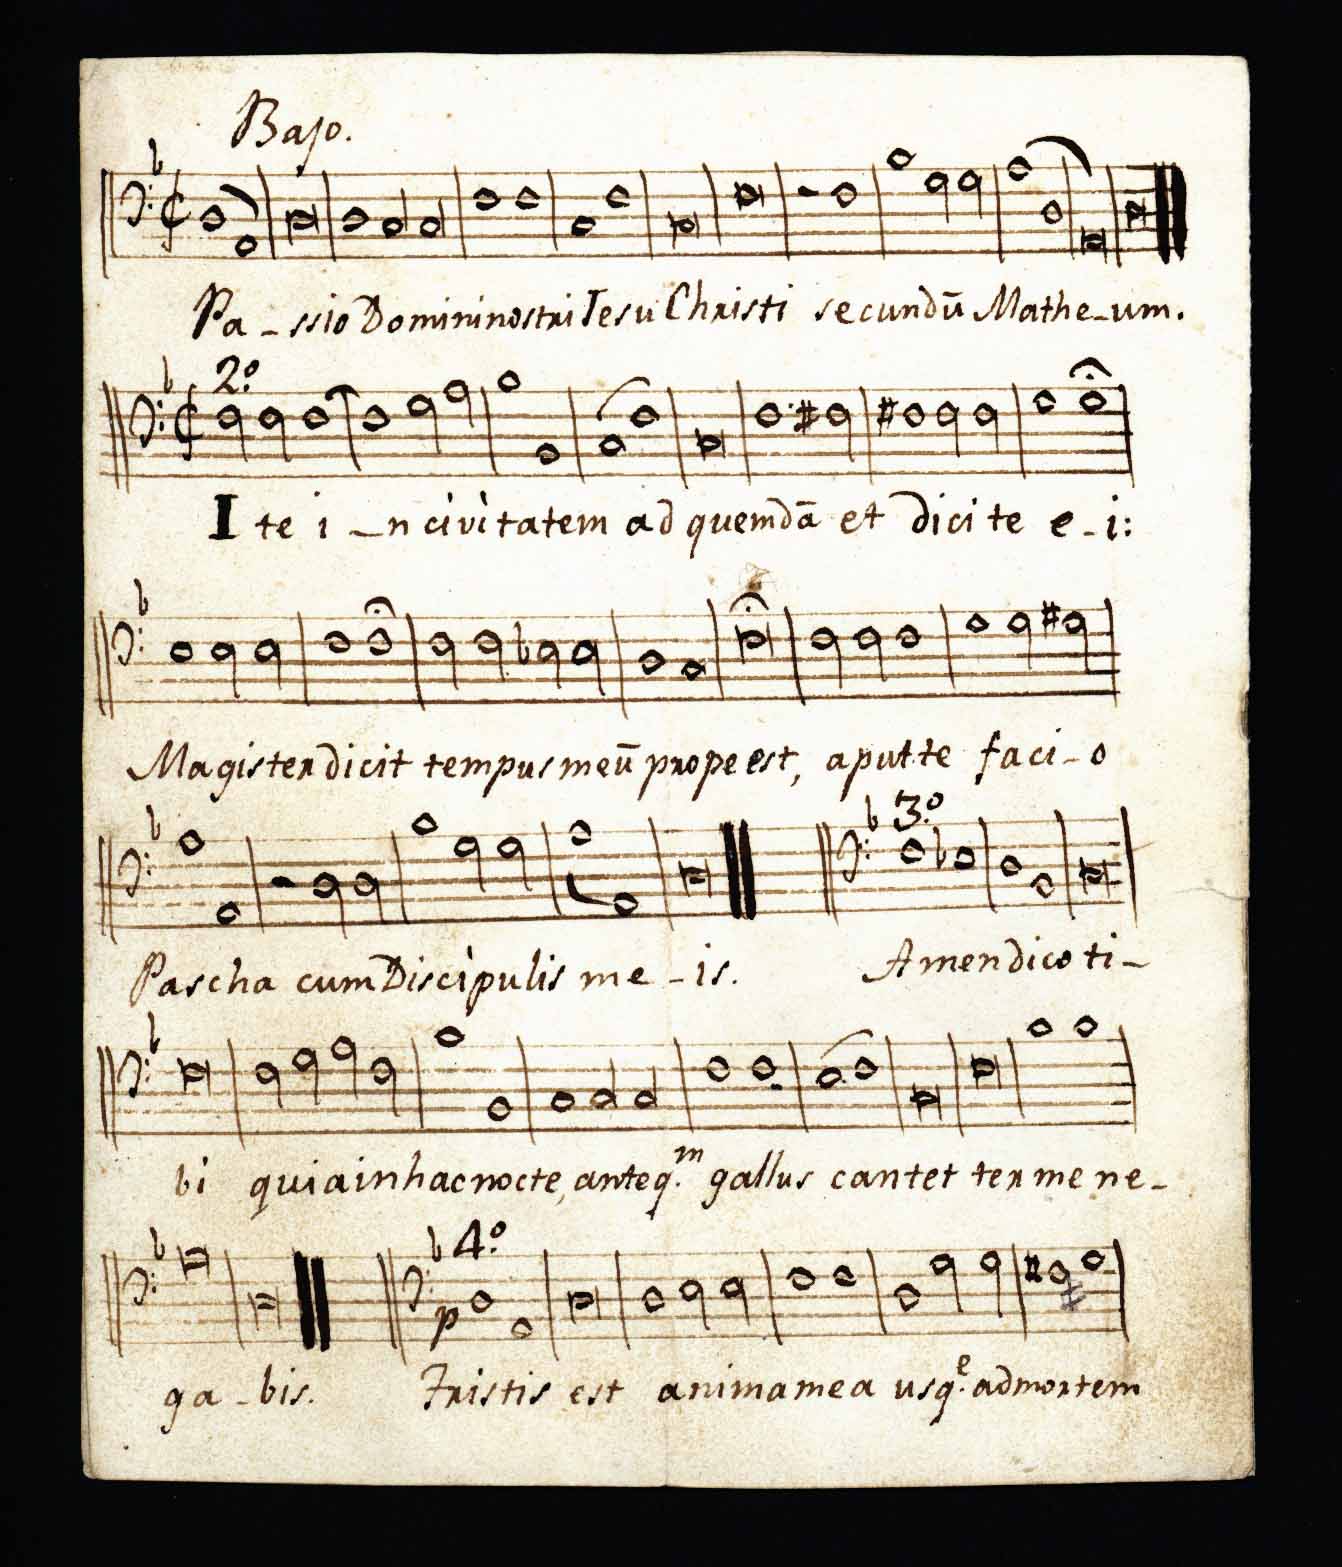 Bajo.
Pa - ssio Domini nostri Jesu Christi secundū Mathe - um.
2.º
I te i - n civitatem ad quemdā et dicite e - i:
Magister dicit tempus meū prope est, aput te faci - o
3.º
Pascha cum Discipulis me - is. Amen dico ti -
bi quia in hac nocte, anteq.m gallus cantet ter me ne -
4.º
p
ga - bis. Tristis est anima mea usq.e ad mortem